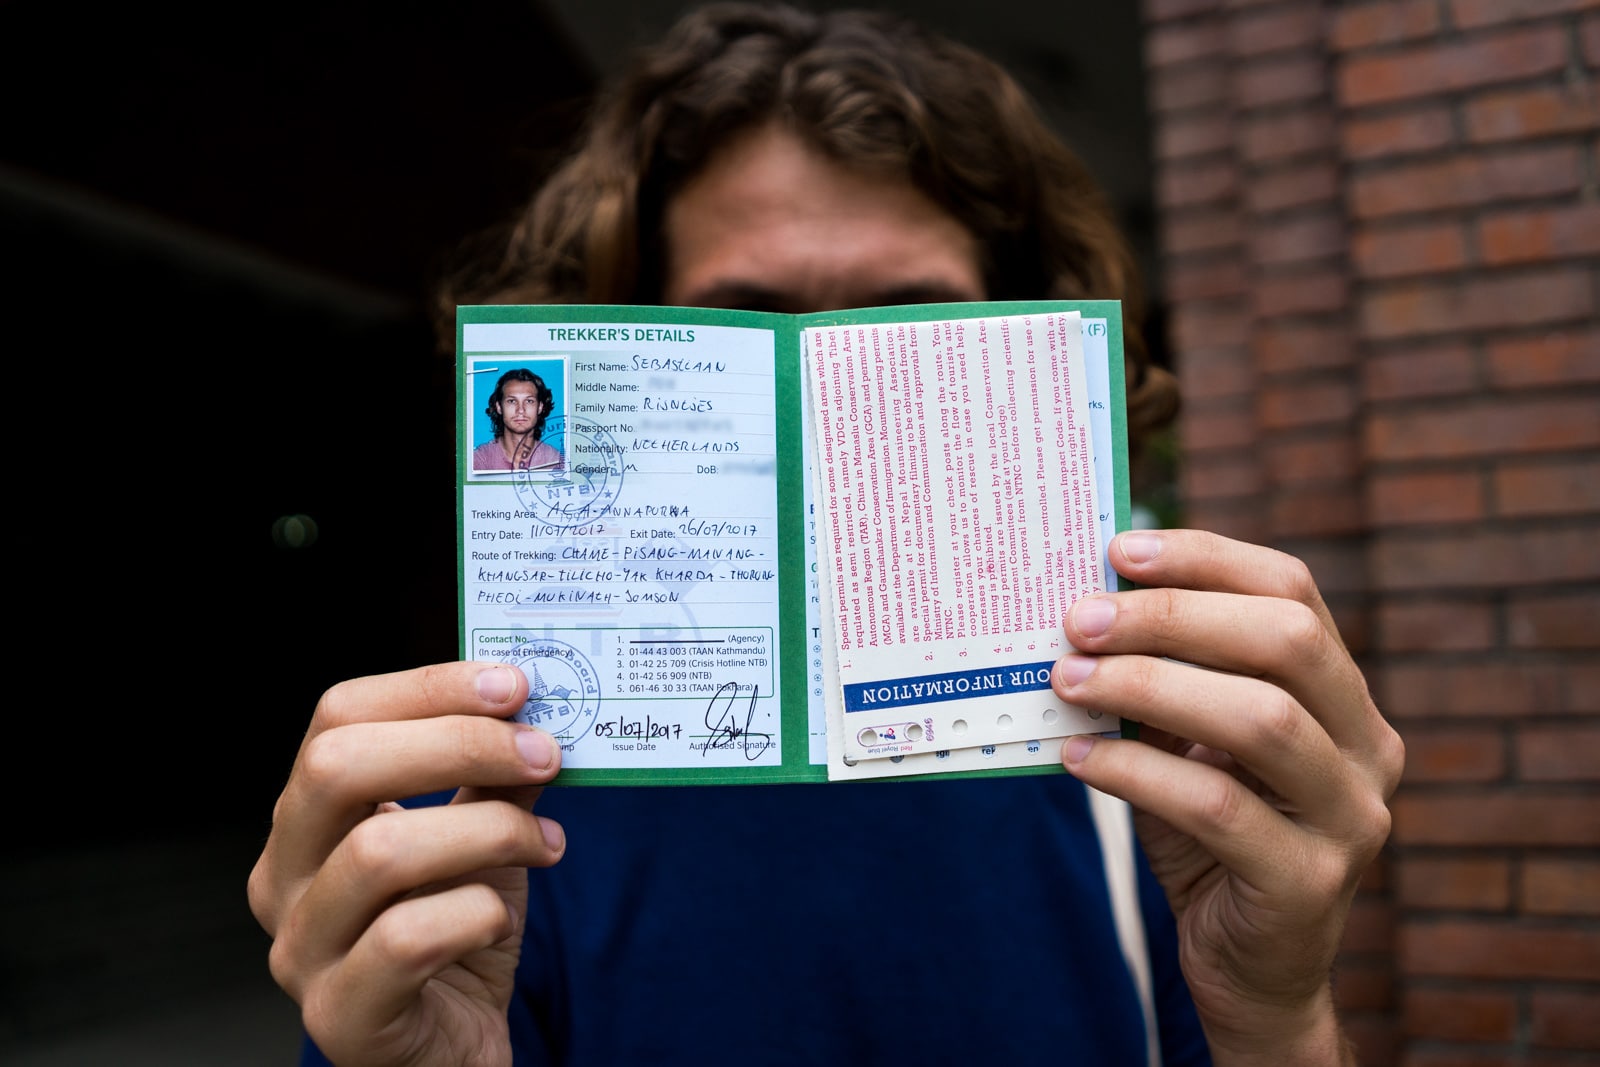 TREKKER'S DETAILS
First Name: SEBASTIAAN
Middle Name:
Family Name: RIJNTJES
Passport No.
Nationality: NETHERLANDS
Gender: M DoB:
Trekking Area: ACA-ANNAPURNA
Entry Date: 11/07/2017 Exit Date: 26/07/2017
Route of Trekking: CHAME-PISANG-MANANG-
KHANGSAR-TILICHO-YAK KHARDA-THORUNG
PHEDI-MUKINATH-JOMSON
Contact No.
(In case of Emergency)
1. (Agency)
2. 01-44 43 003 (TAAN Kathmandu)
3. 01-42 25 709 (Crisis Hotline NTB)
4. 01-42 56 909 (NTB)
5. 061-46 30 33 (TAAN Pokhara)
05/07/2017
Issue Date Authorised Signature
NTB
NTB
NTB
(F)
rks,
OUR INFORMATION
1. Special permits are required for some designated areas which are
requlated as semi restricted, namely VDCs adjoining Tibet
Autonomous Region (TAR), China in Manaslu Conservation Area
(MCA) and Gaurishankar Conservation Area (GCA) and permits are
available at the Department of Immigration. Mountaineering permits
are available at the Nepal Mountaineering Association.
2. Special permit for documentary filming to be obtained from the
Ministry of Information and Communication and approvals from
NTNC.
3. Please register at your check posts along the route. Your
cooperation allows us to monitor the flow of tourists and
increases your chances of rescue in case you need help.
4. Huning is prohibited.
5. Fishing permits are issued by the local Conservation Area
Management Committees (ask at your lodge)
6. Please get approval from NTNC before collecting scientific
specimens.
7. Moutain biking is controlled. Please get permission for use of
mountain bikes.
se follow the Minimum Impact Code. If you come with an
y, make sure they make the right preparations for safety,
y and environmental friendliness.
Red Royal blue
6946